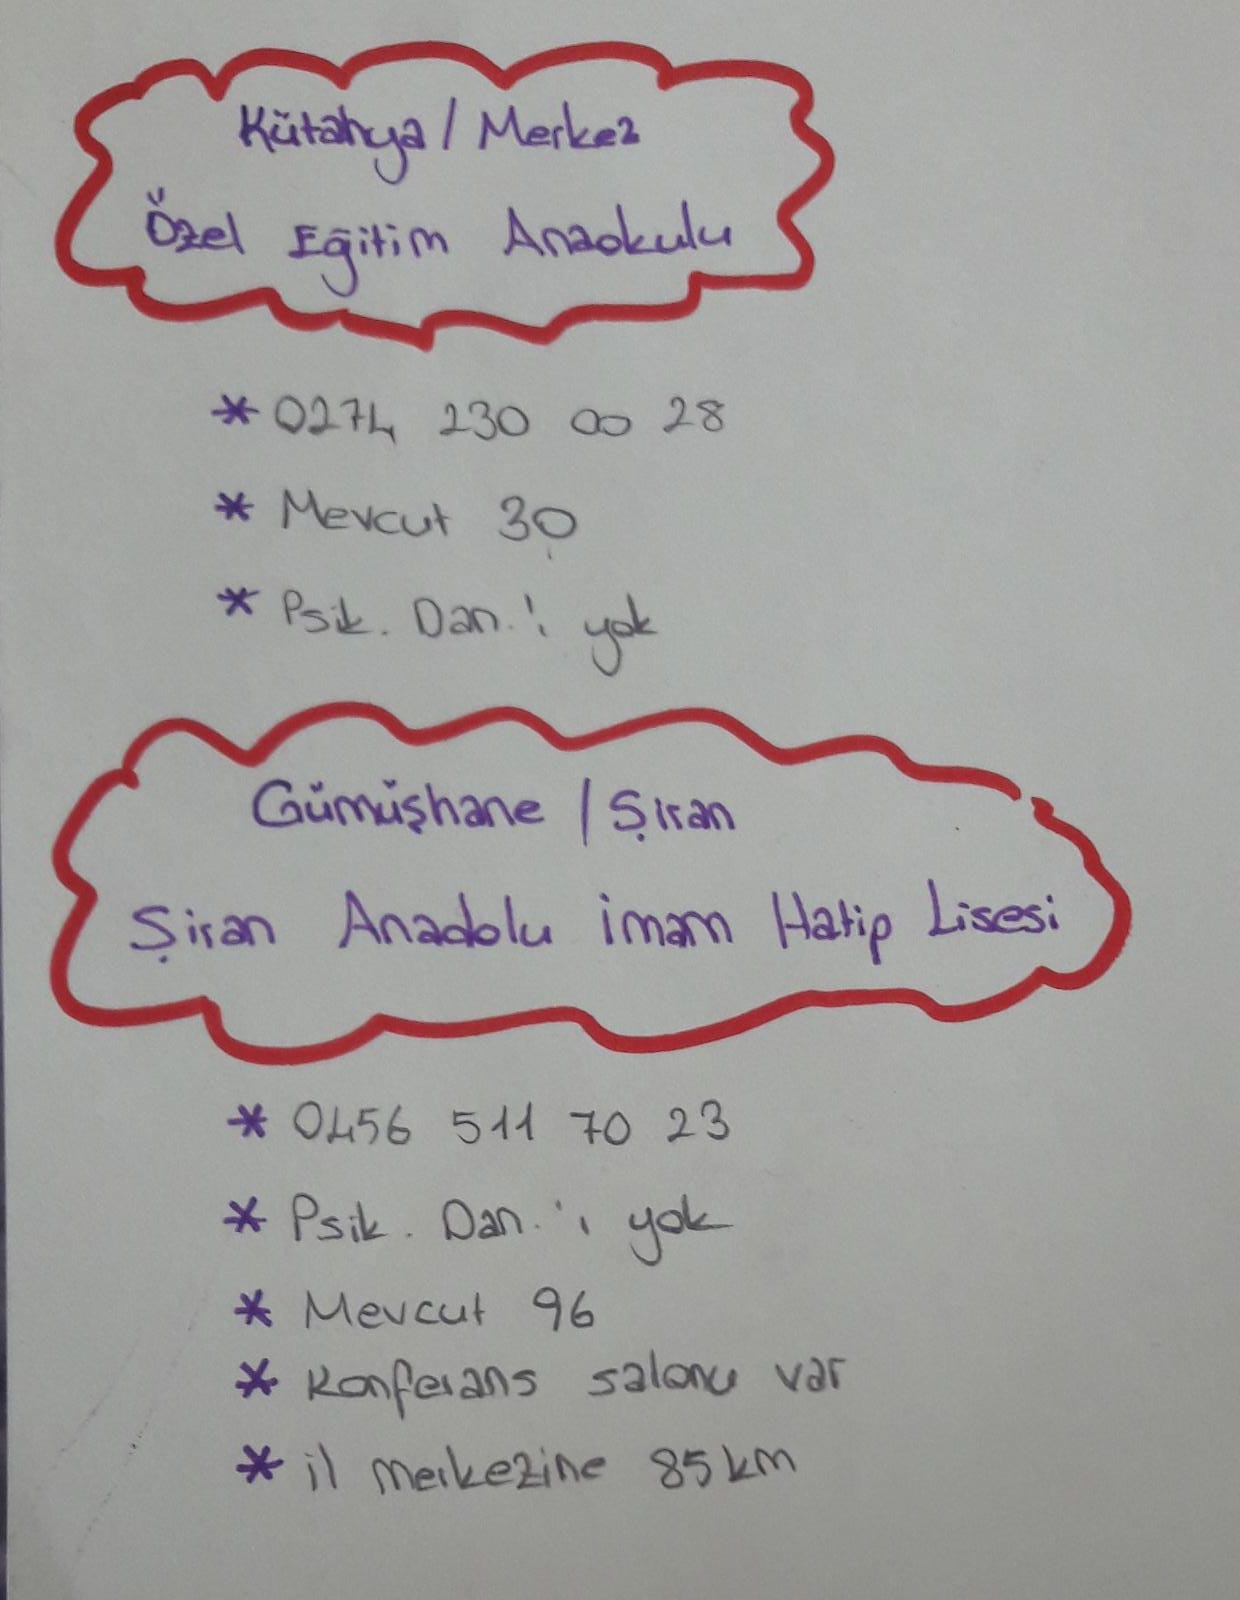 Kütahya / Merkez
Özel Eğitim Anaokulu
* 0274 230 00 28
* Mevcut 30
* Psik. Dan.'ı yok
Gümüşhane / Şiran
Şiran Anadolu İmam Hatip Lisesi
* 0456 511 70 23
* Psik. Dan.'ı yok
* Mevcut 96
* Konferans salonu var
* il merkezine 85 km